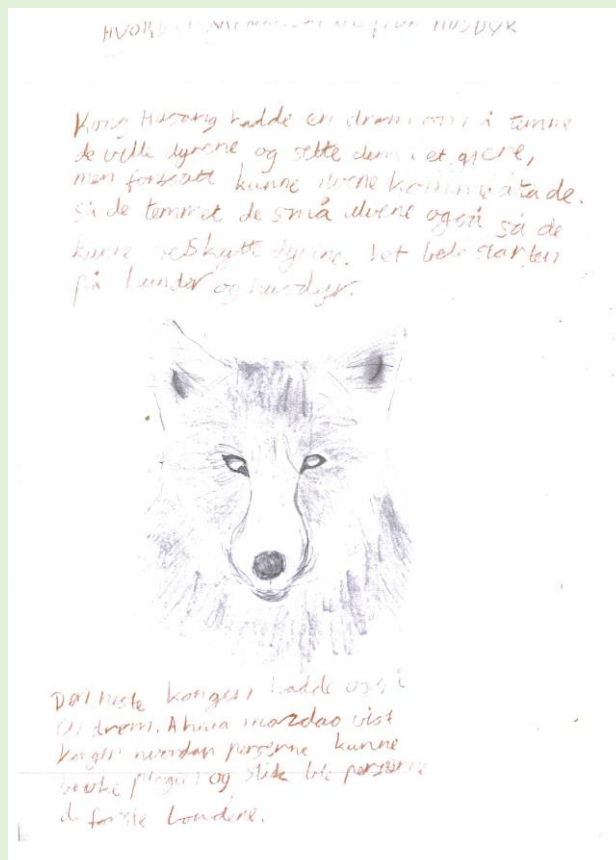 HVORDAN MENNESKENE FIKK HUSDYR
Kong Husang hadde en drøm om å temme
de ville dyrene og sette dem i et gjerde,
men fortsatt kunne ulvene komme å ta de.
så de temmet de små ulvene også så de
kunne beskytte dyrene. Det ble starten
på hunder og husdyr.
Den neste kongen hadde også
en drøm. Ahura mazdao vist
kongen hvordan perserne kunne
bruke plogen og slik ble perserne
de første bøndene.